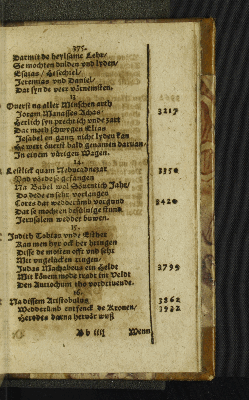 375.
Darmit de heylsame Lehr/
Se mochten dulden vnd lyden/
Esaias / Hesechiel/
Jeremias vnd Daniel/
Dat syn de veer vörnemsten.
13.
Querst na aller Minschen arth 3217
Joram Manasses Achas
Herlich syn precht sich vnde zart
Dat moth schwygen Elias
Jesabel en gantz nicht lyden kan
He wert överst bald genamen darvan/
In einem vürigen Wagen.
14.
Lestlick quam Nebucadnezar 3350
Vnd vörde se gefangen
Na Babel wol Söuentich Jahr/
Do dede en sehr vorlangen
Cores dat wedderümb vorgund 3420
Dat se mochten desülvige stund
Jerusalem wedder buwen.
15.
Judith Tobias vnde Esther
Kan men hyr ock her bringen
Disse de mosten offt vnd sehr
Mit vngelücken ringen/
Judas Machabeus ein Helde 3799
Mit könem mode tradt int Veldt
Den Antiochum tho vordrivende.
16.
Na dissem Aristobulus 3862
Wedderümb entfenck de Kronen/ 3932
Herodes darna hervör muß
Bb iiij Wenn